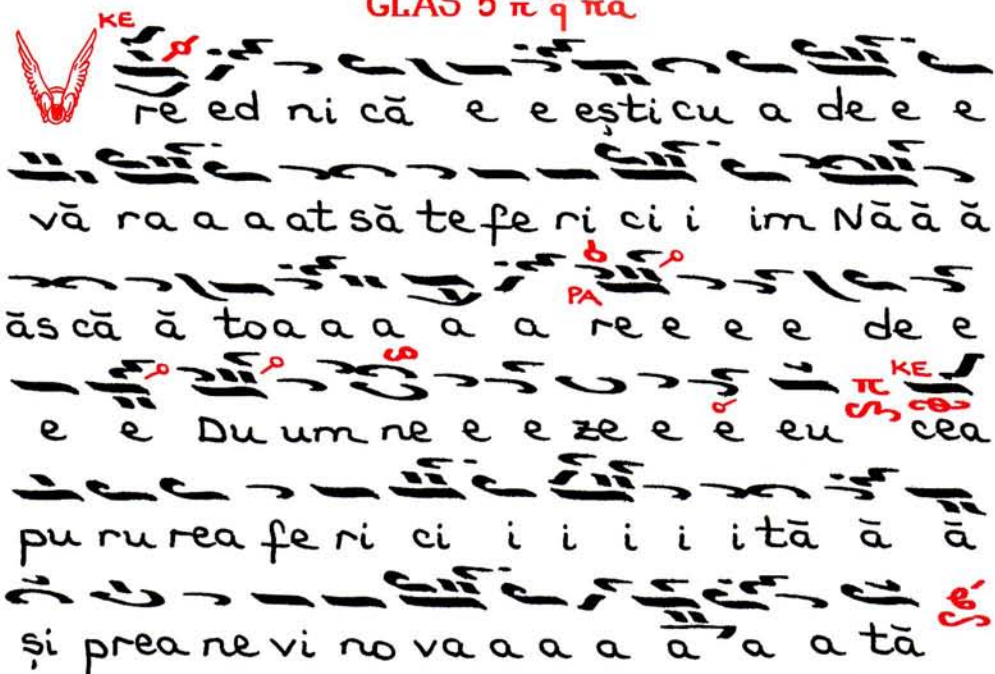 GLAS 5 π q πa
KE
re ed ni că e e ești cu a de e e
vă ra a a at să te fe ri ci i im Nă ă ă
ăs că ă toa a a a a re e e e de e
PA
e e Du um ne e e ze e e eu π KE cea
pu ru rea fe ri ci i i i i i tă ă ă
și prea ne vi no va a a a a a a tă